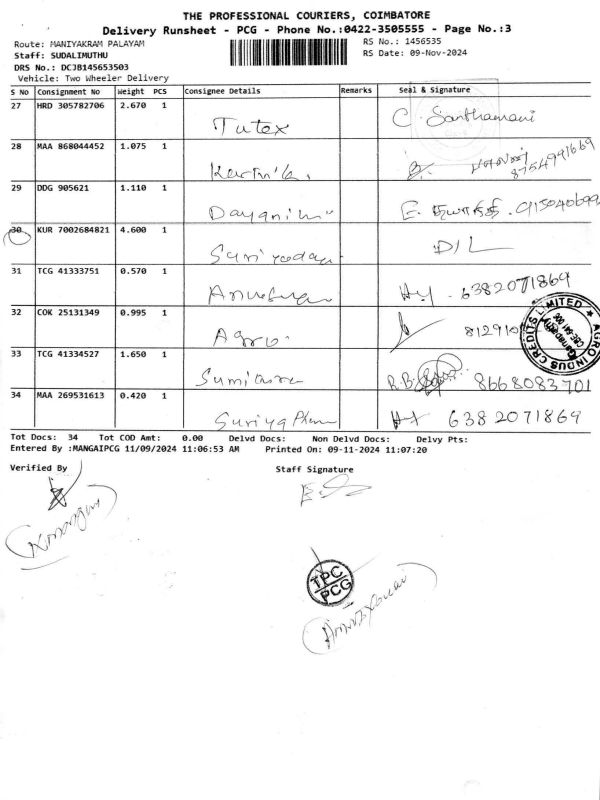 THE PROFESSIONAL COURIERS, COIMBATORE
Delivery Runsheet - PCG - Phone No.:0422-3505555 - Page No.:3
Route: MANIYAKRAM PALAYAM RS No.: 1456535
Staff: SUDALIMUTHU RS Date: 09-Nov-2024
DRS No.: DC3B145653503
Vehicle: Two Wheeler Delivery
S No Consignment No Weight PCS Consignee Details Remarks Seal & Signature
27 HRD 305782706 2.670 1
Tutex C. Santhamani
28 MAA 868044452 1.075 1
8754991669
29 DDG 905621 1.110 1
30 KUR 7002684821 4.600 1
D/L
31 TCG 41333751 0.570 1
6382071869
32 COK 25131349 0.995 1
Agro 812910
AGRO INDUS CREDITS LIMITED
33 TCG 41334527 1.650 1
R.B. 8668083701
34 MAA 269531613 0.420 1
6382071869
Tot Docs: 34 Tot COD Amt: 0.00 Delvd Docs: Non Delvd Docs: Delvy Pts:
Entered By :MANGAIPCG 11/09/2024 11:06:53 AM Printed On: 09-11-2024 11:07:20
Verified By Staff Signature
TPC
PCG